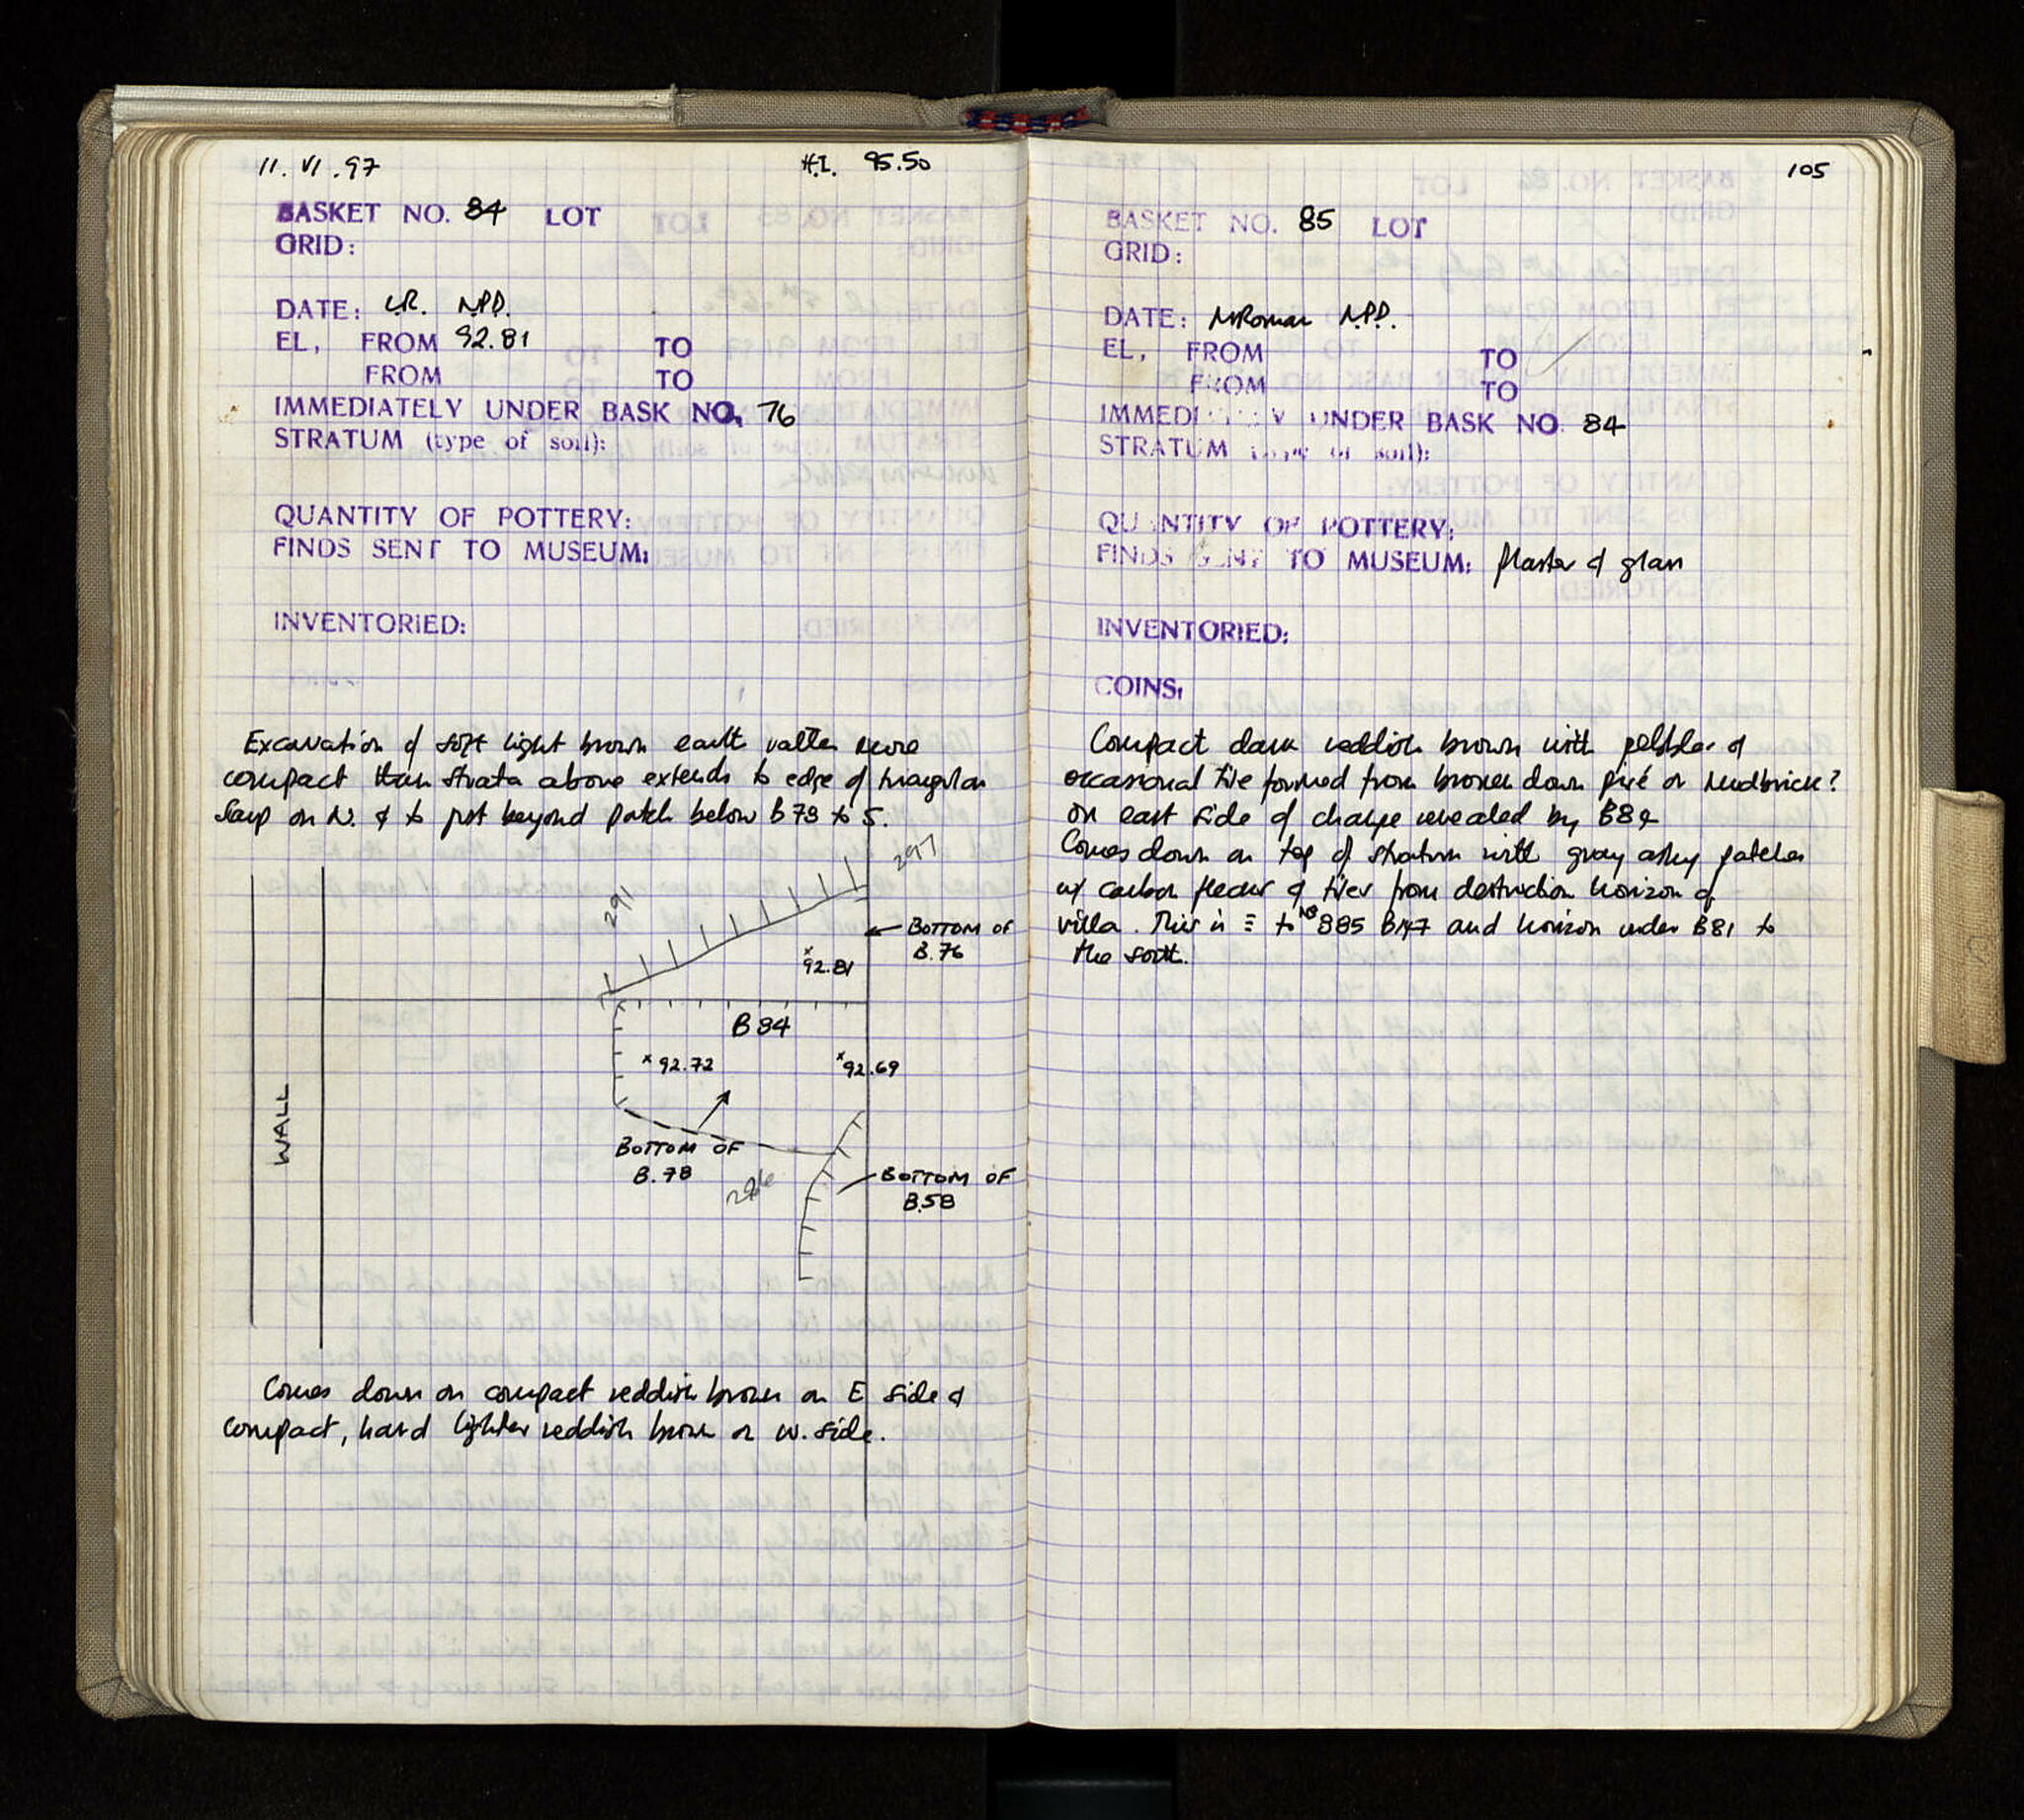 11. VI .97
H.I. 95.50
BASKET NO. 84 LOT
GRID:
DATE: L.R. N.P.D.
EL, FROM 92.81 TO
FROM TO
IMMEDIATELY UNDER BASK NO, 76
STRATUM (type of soil):
QUANTITY OF POTTERY:
FINDS SENT TO MUSEUM:
INVENTORIED:
Excavation of soft light brown earth rather more
compact than strata above extends to edge of triangular
scarp on N. & to just beyond patch below B78 to S.
291
297
BOTTOM OF
B.76
92.81
B84
92.72
92.69
WALL
BOTTOM OF
B.78
BOTTOM OF
B.58
Comes down on compact reddish brown on E side &
compact, hard lighter reddish brown on W. side.
105
BASKET NO. 85 LOT
GRID:
DATE: MRoman N.P.D.
EL, FROM TO
FROM TO
IMMEDIATELY UNDER BASK NO. 84
STRATUM (type of soil):
QUANTITY OF POTTERY:
FINDS SENT TO MUSEUM: Plaster & glass
INVENTORIED:
COINS:
Compact dark reddish brown with pebbles &
occasional tile formed from broken down pisé or mudbrick?
on east side of change revealed by B84
Comes down on top of stratum with gray ashy patches
w/ carbon flecks & tiles from destruction horizon of
villa. This is ≡ to NB 885 B147 and horizon under B81 to
the south.